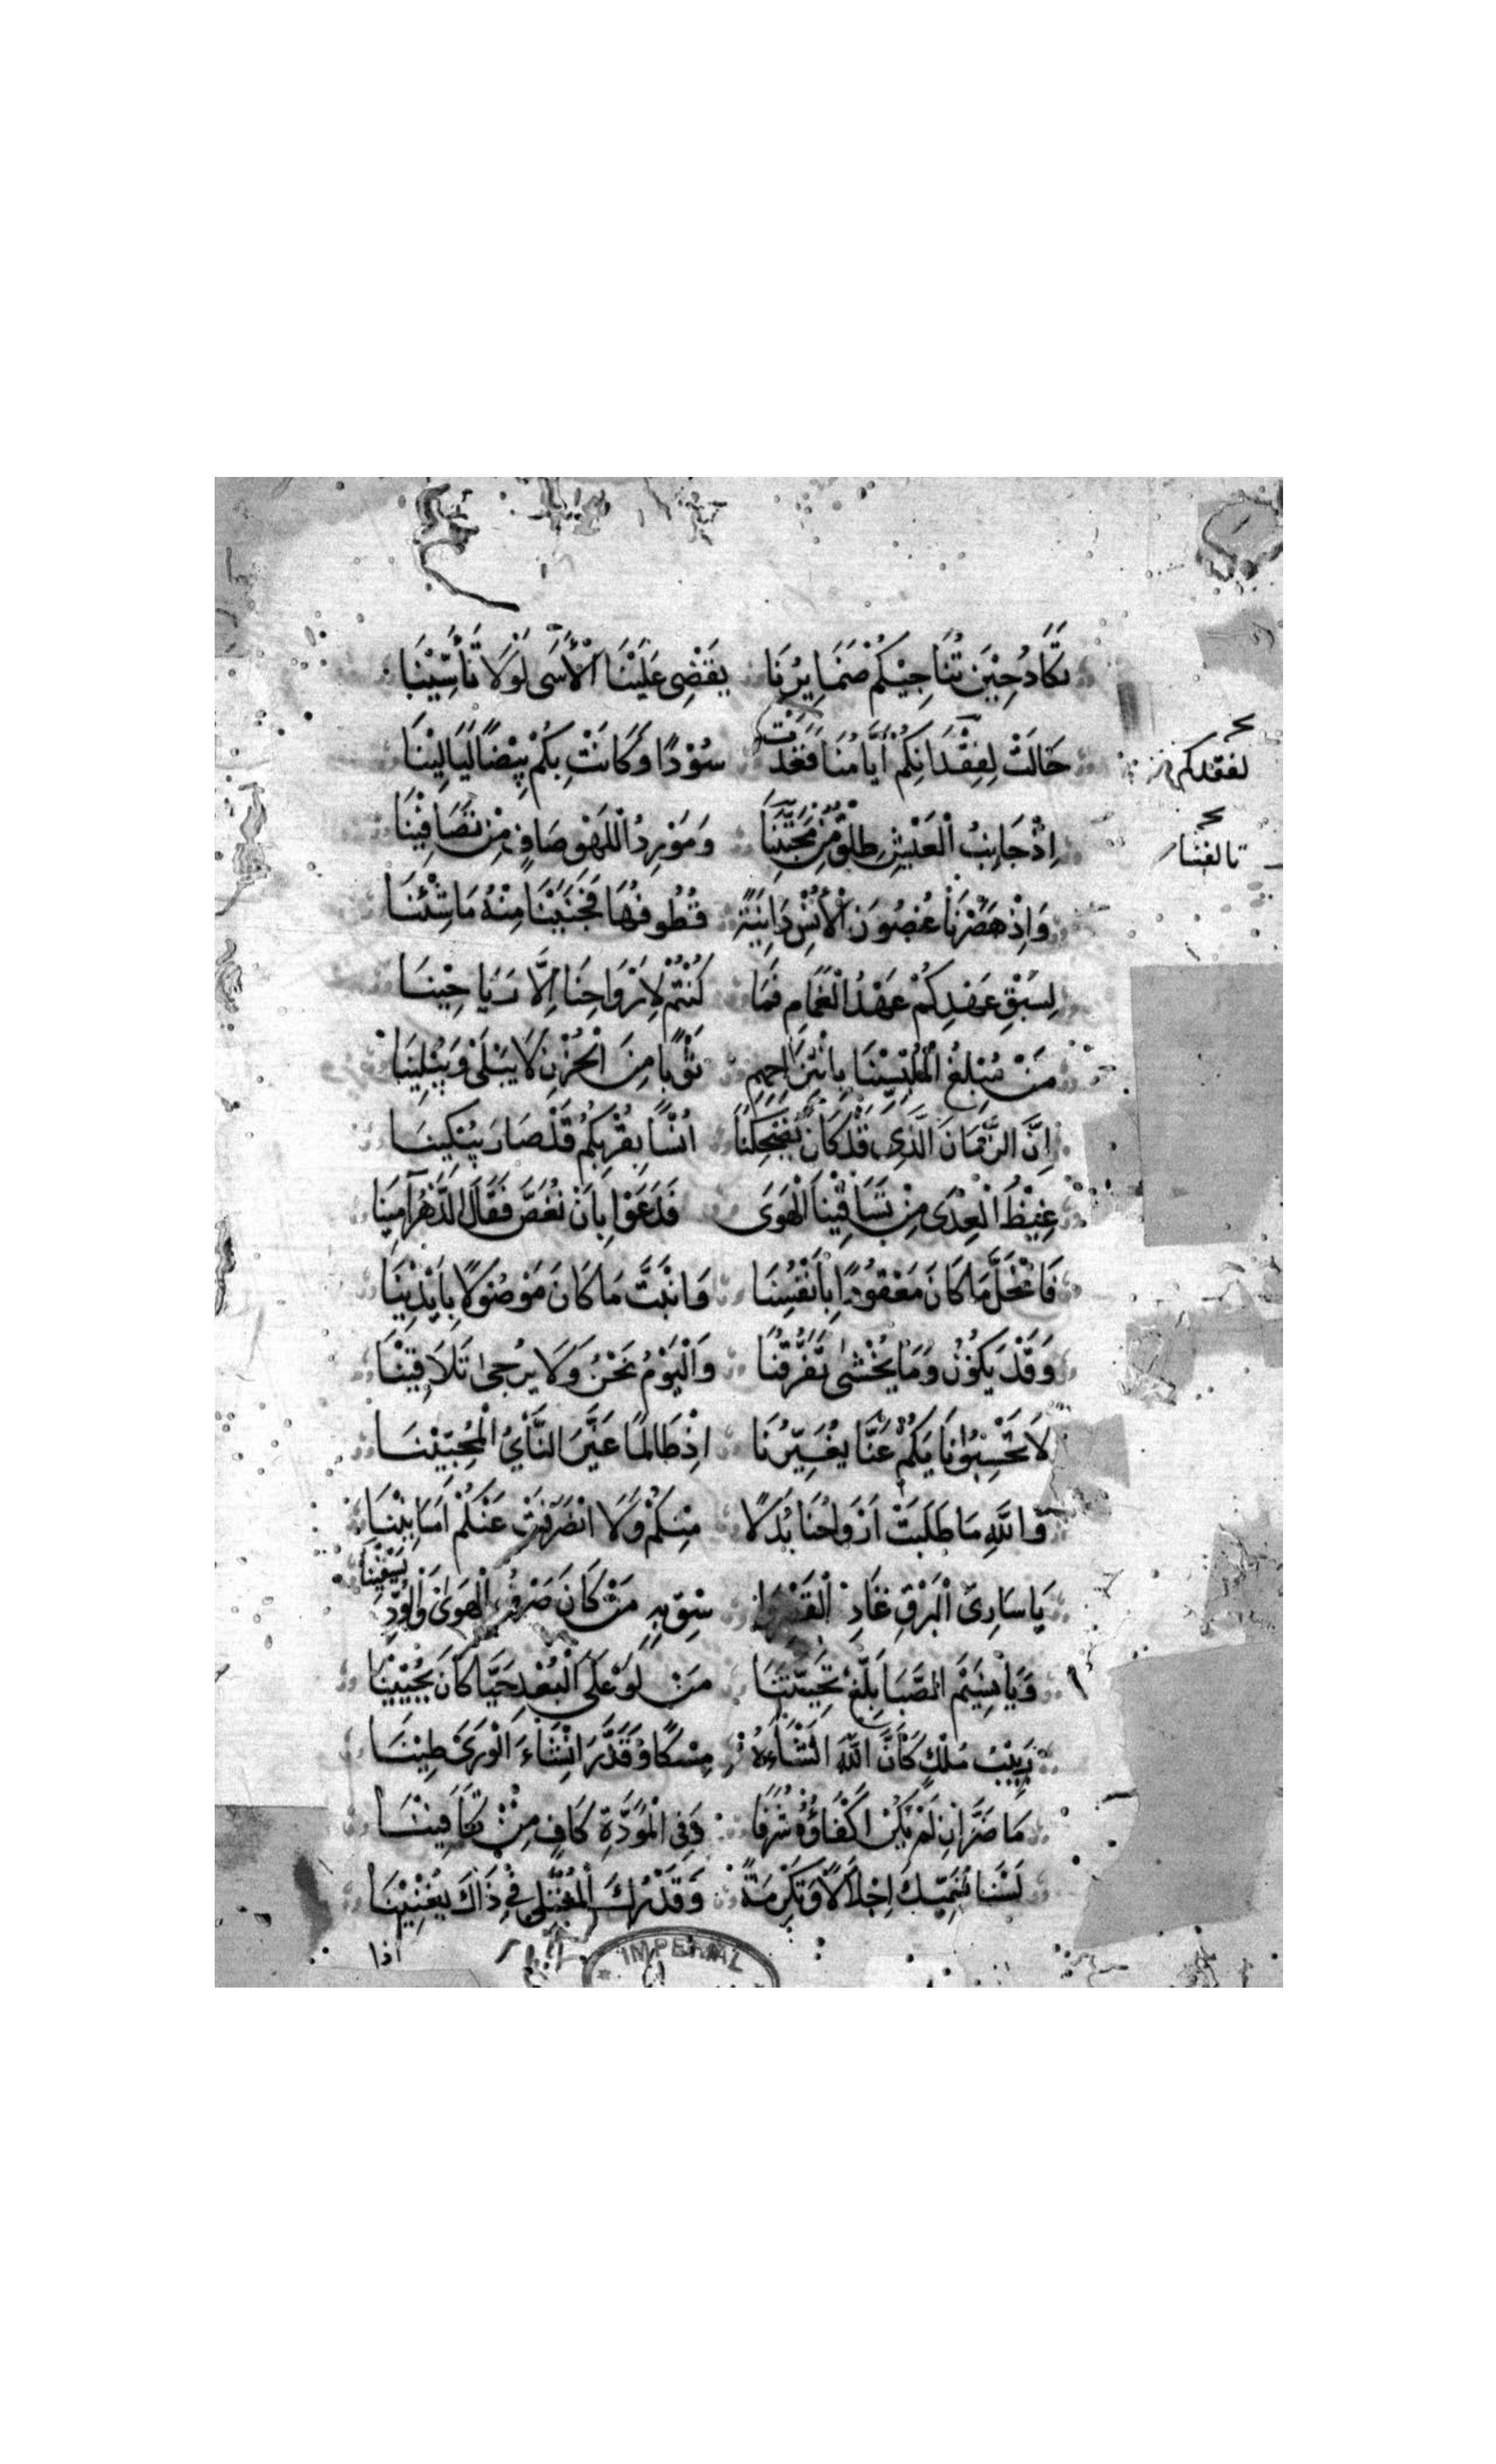 تَكَادُ حِيْنَ تُنَاجِيْكُمْ ضَمَايِرُنَا يَقْضِى عَلَيْنَا الْأَسَى لَوْلَا تَأَسِّيْنَا
حَالَتْ لِفِقْدَانِكُمْ أَيَّامُنَا فَغَدَتْ سُوْدًا وَكَانَتْ بِكُمْ بِيْضًا لَيَالِيْنَا
لفقدكم
اِذْ جَانِبُ الْعَيْشِ طِلْقٌ مِنْ وَمَوْرِدُ اللَّهْوِ صَافٍ مِنْ تَصَافِيْنَا
تالفنا
وَاِذْ هَصَرْنَا غُصُوْنَ الْأُنْسِ دَانِيَةً قُطُوفُهَا فَجَنَيْنَا مِنْهُ مَا شِئْنَا
لِسَبْقِ عَهْدِكُمْ عَهْدُ الْغَمَامِ فَمَا كُنْتُمْ لِاَرْوَاحِنَا اِلَّا رَيَاحِيْنَا
مَنْ مُبْلِغُ الْمُلْبِسِيْنَا بِانْتِزَاحِهِمِ ثَوْبًا مِنَ الْحُزْنِ لَا يَبْلَى وَيُبْلِيْنَا
اِنَّ الزَّمَانَ الَّذِى قَدْ كَانَ يُضْحِكُنَا اُنْسًا بِقُرْبِكُمُ قَدْ صَارَ يُبْكِينَا
غِيْظَ الْعِدَى مِنْ تَسَاقِيْنَا الْهَوَى فَدَعَوْا بِاَنْ نَغُصَّ فَقَالَ الدَّهْرُ آمِيْنَا
فَانْحَلَّ مَا كَانَ مَعْقُودًا بِاَنْفُسِنَا وَانْبَتَّ مَا كَانَ مَوْصُوْلًا بِاَيْدِيْنَا
وَقَدْ يَكُوْنُ وَمَا يُخْشَى تَفَرُّقُنَا وَالْيَوْمُ نَحْنُ وَلَا يُرْجٰى تَلَاقِيْنَا
لَا تَحْسِبُوْا نَايَكُمْ عَنَّا يُغَيِّرُنَا اِذْ طَالَمَا غَيَّرَ النَّأْيُ الْمُحِبِّيْنَا
وَاللّٰهِ مَا طَلَبَتْ اَرْوَاحُنَا بَدَلًا مِنْكُمْ وَلَا انْصَرَفَتْ عَنْكُمْ اَمَانِيْنَا
يَا سَارِىَ الْبَرْقِ غَادِ الْقَصْرَ وَا سْقِ بِهِ مَنْ كَانَ صَرْفَ الْهَوٰى وَالْوُدِّ يَسْقِيْنَا
وَيَا نَسِيْمَ الصَّبَا بَلِّغْ تَحِيَّتَنَا مَنْ لَوْ عَلَى الْبُعْدِ حَيًّا كَانَ يُحْيِيْنَا
رَبِيْبُ مُلْكٍ كَأَنَّ اللّٰهَ انْشَاءَهُ مِسْكًا وَقَدَّرَ اِنْشَاءَ الْوَرَىٰ طِيْنَا
مَا ضَرَّ اِنْ لَمْ نَكُنْ اَكْفَاؤُهُ شَرَفًا وَفِى الْمَوَدَّةِ كَافٍ مِنْ تَكَافِيْنَا
لَسْنَا نُسَمِّيْكَ اِجْلَالًا وَتَكْرِمَةً وَقَدْرُكَ الْمُعْتَلِى فِىْ ذَاكَ يُغْنِيْنَا
اذا
IMPERIAL